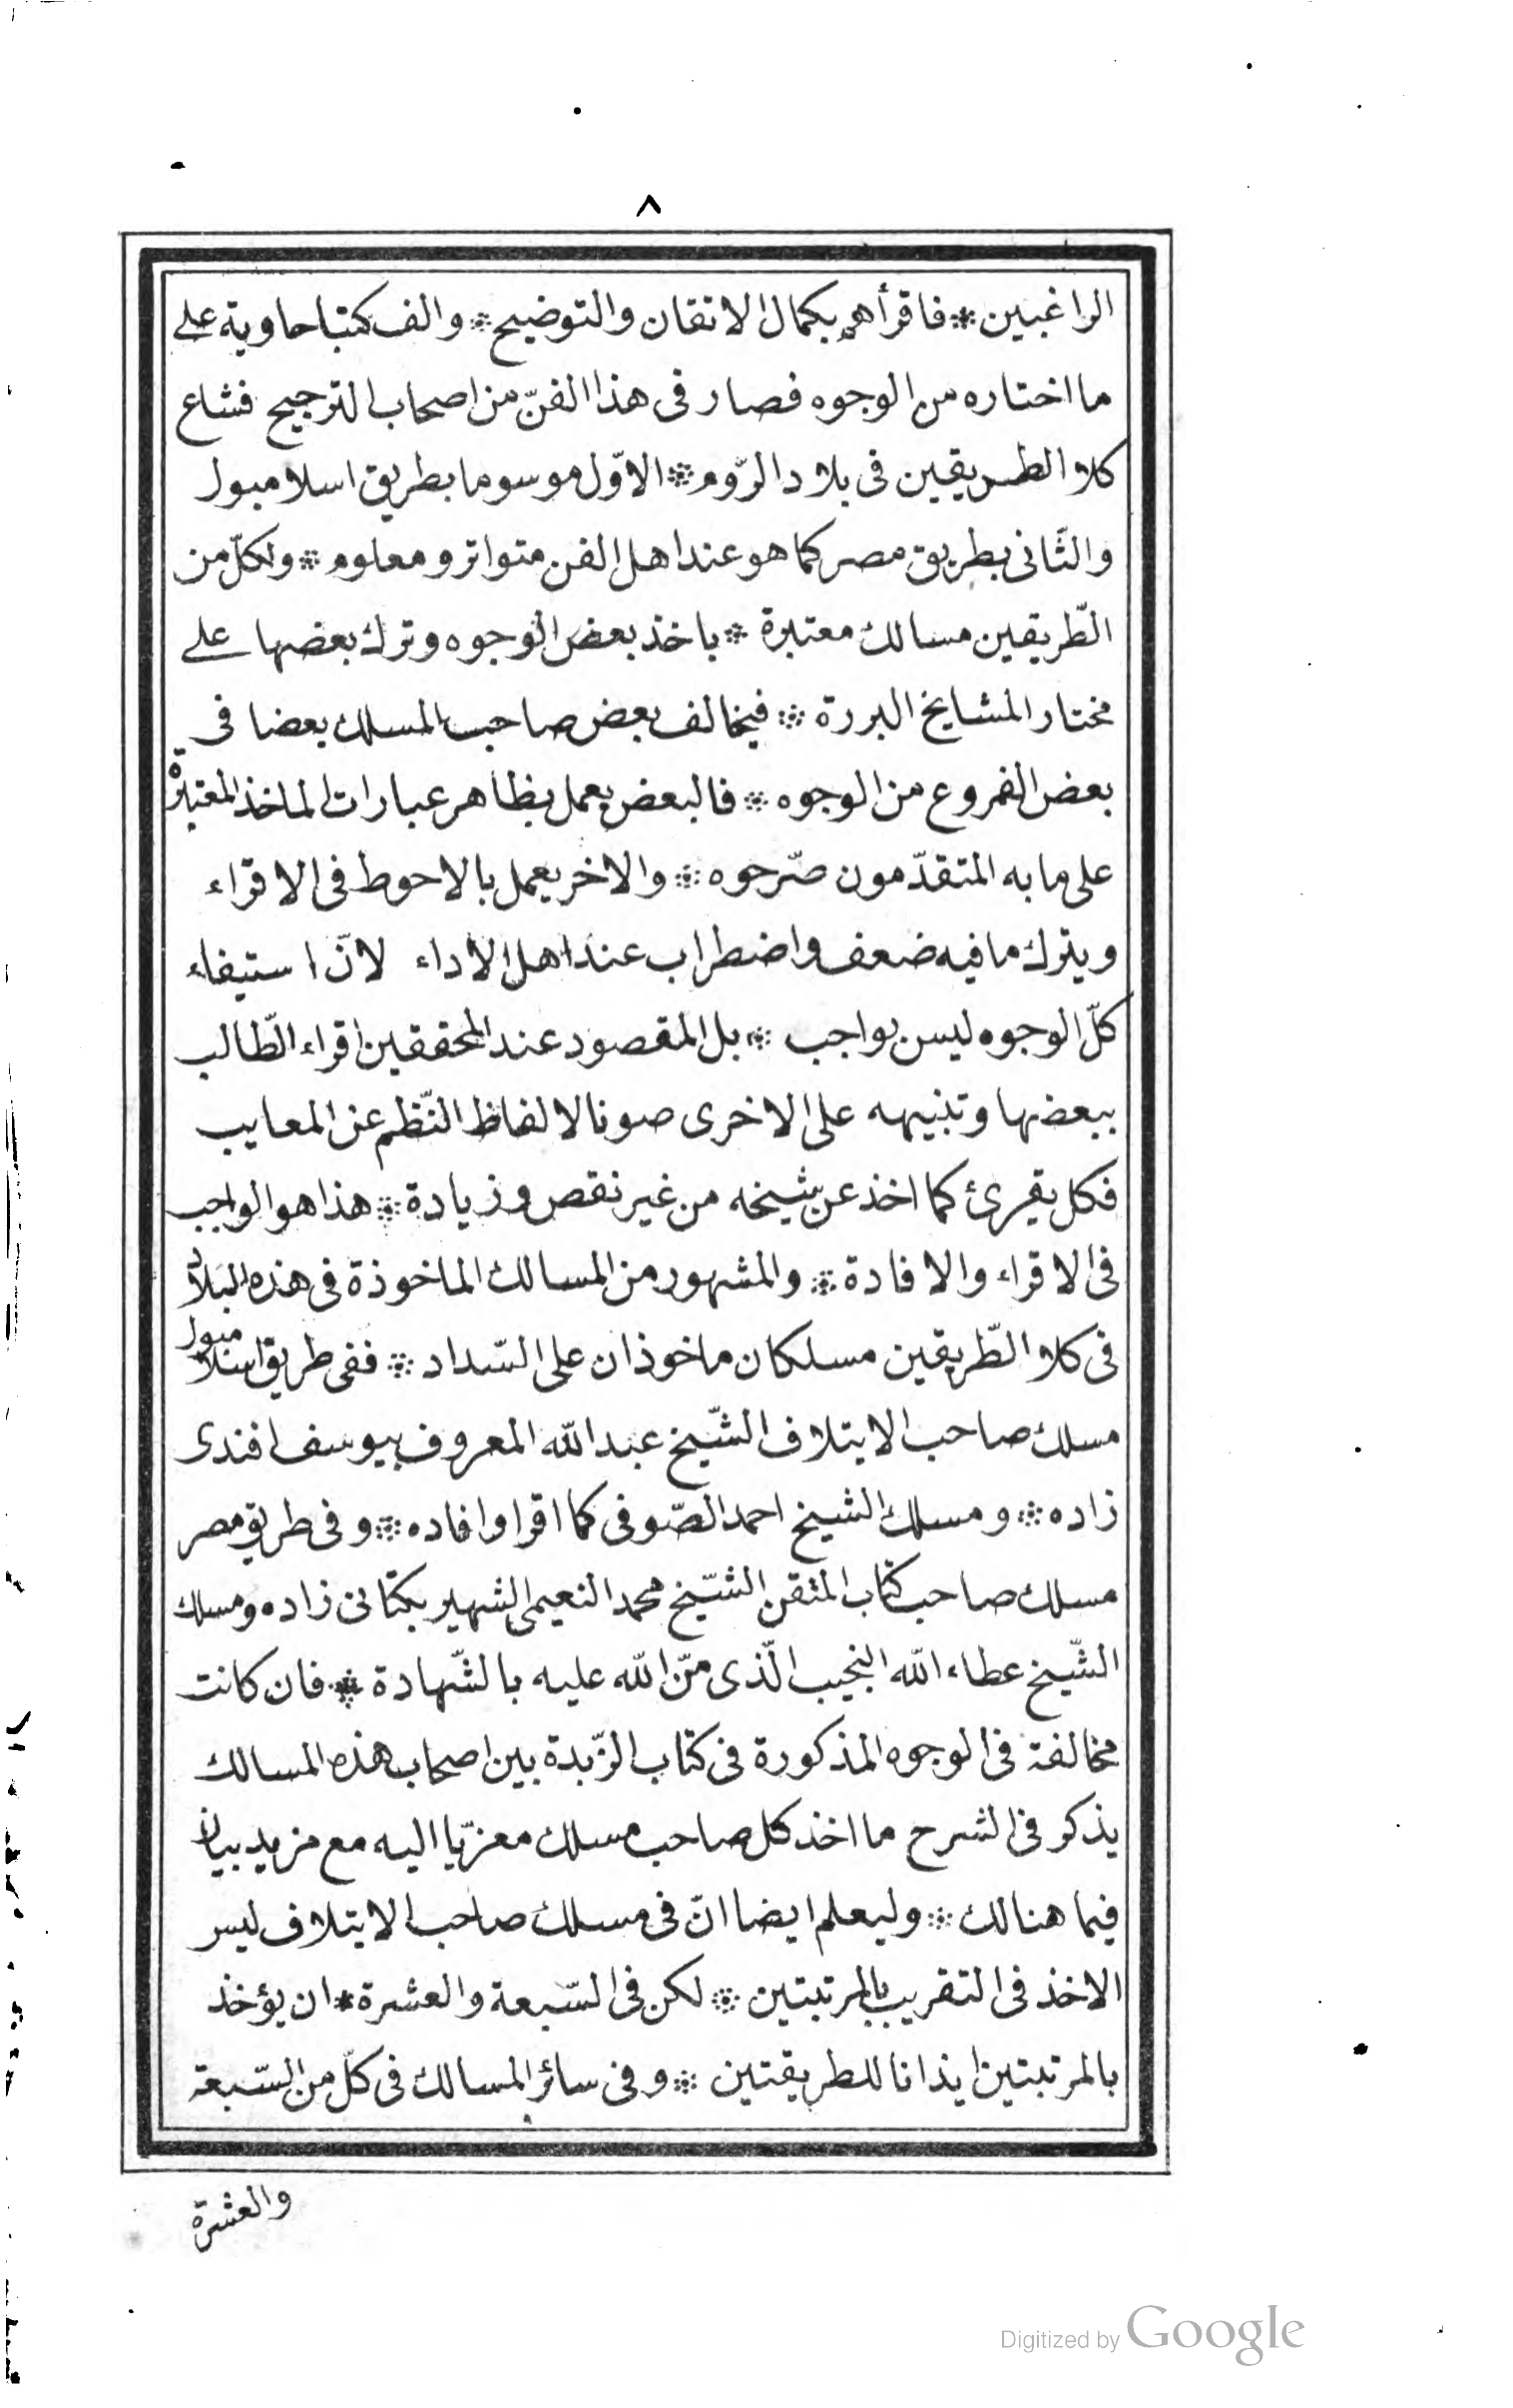 ٨
الراغبين ۞ فاقرأهم بكمال الاتقان والتوضيح ۞ والف كتبا حاوية على
ما اختاره من الوجوه فصار فى هذا الفنّ من اصحاب الترجيح فشاع
كلا الطريقين فى بلاد الرّوم ۞ الاوّل موسوما بطريق اسلامبول
والثّانى بطريق مصر كما هو عند اهل الفن متواتر ومعلوم ۞ ولكلّ من
الطّريقين مسالك معتبرة ۞ باخذ بعض الوجوه وترك بعضها على
مختار المشايخ البررة ۞ فيخالف بعض صاحب المسلك بعضا فى
بعض الفروع من الوجوه ۞ فالبعض يعمل بظاهر عبارات الماخذ المعتبرة
على ما به المتقدّمون صرّحوه ۞ والاخر يعمل بالاحوط فى الاقراء
ويترك ما فيه ضعف واضطراب عند اهل الاداء لانّ استيفاء
كلّ الوجوه ليس بواجب ۞ بل المقصود عند المحققين اقراء الطّالب
ببعضها وتنبيهه على الاخرى صونا لالفاظ النّظم عن المعايب
فكل يقرئ كما اخذ عن شيخه من غير نقص وزيادة ۞ هذا هو الواجب
فى الاقراء والافادة ۞ والمشهور من المسالك الماخوذة فى هذه البلاد
فى كلا الطّريقين مسلكان ماخوذان على السّداد ۞ ففى طريق اسلامبول
مسلك صاحب الايتلاف الشّيخ عبد الله المعروف بيوسف افندى
زاده ۞ ومسلك الشيخ احمد الصّوفى كما اقرا وافاده ۞ وفى طريق مصر
مسلك صاحب كتاب المتقن الشّيخ محمد النعيمى الشهير بكتانى زاده ومسلك
الشّيخ عطاء الله النجيب الّذى منّ الله عليه بالشّهادة ۞ فان كانت
مخالفة فى الوجوه المذكورة فى كتاب الزّبدة بين اصحاب هذه المسالك
يذكر فى الشرح ما اخذ كل صاحب مسلك معزيّا اليه مع مزيد بيان
فيما هنالك ۞ وليعلم ايضا انّ فى مسلك صاحب الايتلاف ليس
الاخذ فى التقريب بالمرتبتين ۞ لكن فى السّبعة والعشرة * ان يؤخذ
بالمرتبتين ايذانا للطريقتين ۞ وفى سائر المسالك فى كلّ من السّبعة
والعشرة
Digitized by Google